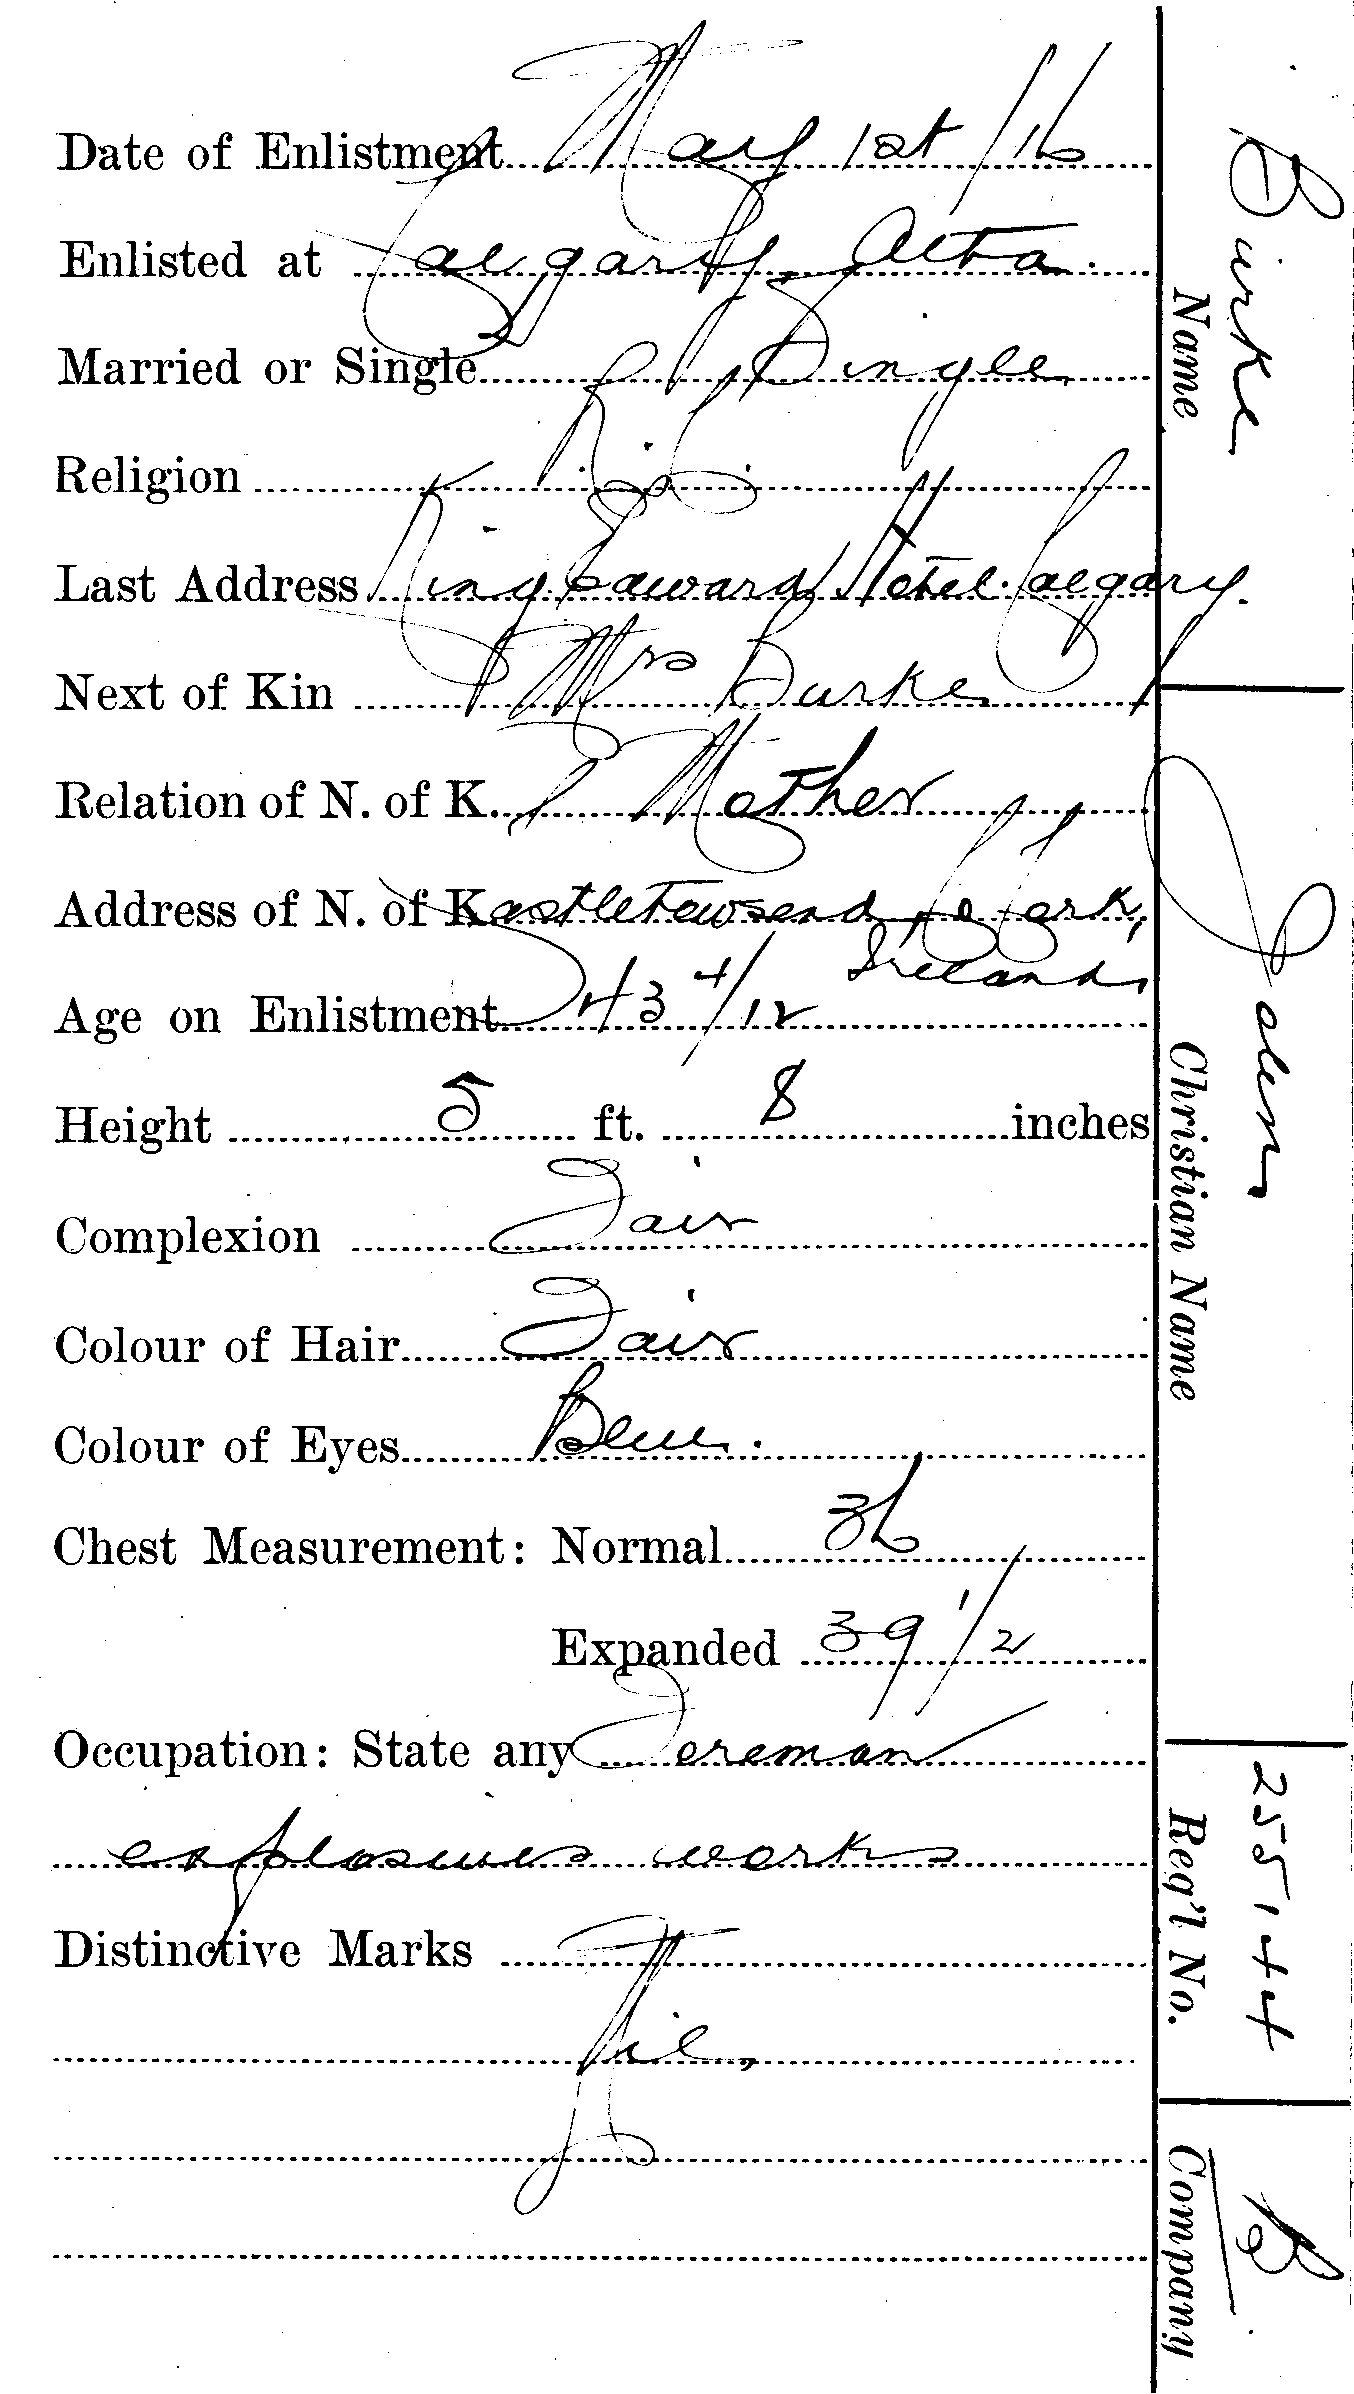 Date of Enlistment May 1st /16
Enlisted at Calgary, Alta.
Married or Single Single
Religion R.C.
Last Address King Edward Hotel. Calgary.
Next of Kin Mrs Burke
Relation of N. of K. Mother
Address of N. of K. Castletowsend, Co Cork,
Ireland,
Age on Enlistment 43 4/12
Height 5 ft. 8 inches
Complexion Fair
Colour of Hair Fair
Colour of Eyes Blue.
Chest Measurement: Normal 36
Expanded 39 1/2
Occupation: State any Foreman
explosives works
Distinctive Marks
Nil,
Burke
Name
John
Christian Name
255144
Reg'l No.
B
Company